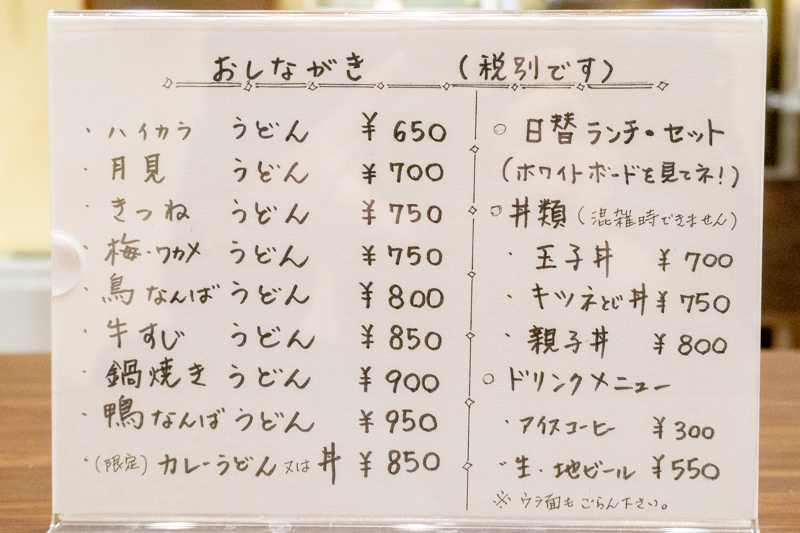 おしながき (税別です)
・ハイカラ うどん ¥650
・月見 うどん ¥700
・きつね うどん ¥750
・梅・ワカメ うどん ¥750
・鳥なんば うどん ¥800
・牛すじ うどん ¥850
・鍋焼き うどん ¥900
・鴨なんば うどん ¥950
・(限定)カレーうどん又は丼 ¥850
○日替ランチ・セット
(ホワイトボードを見てネ!)
○丼類(混雑時できません)
・玉子丼 ¥700
・キツネとじ丼 ¥750
・親子丼 ¥800
○ドリンクメニュー
・アイスコーヒー ¥300
・生・地ビール ¥550
※ウラ面もごらん下さい。